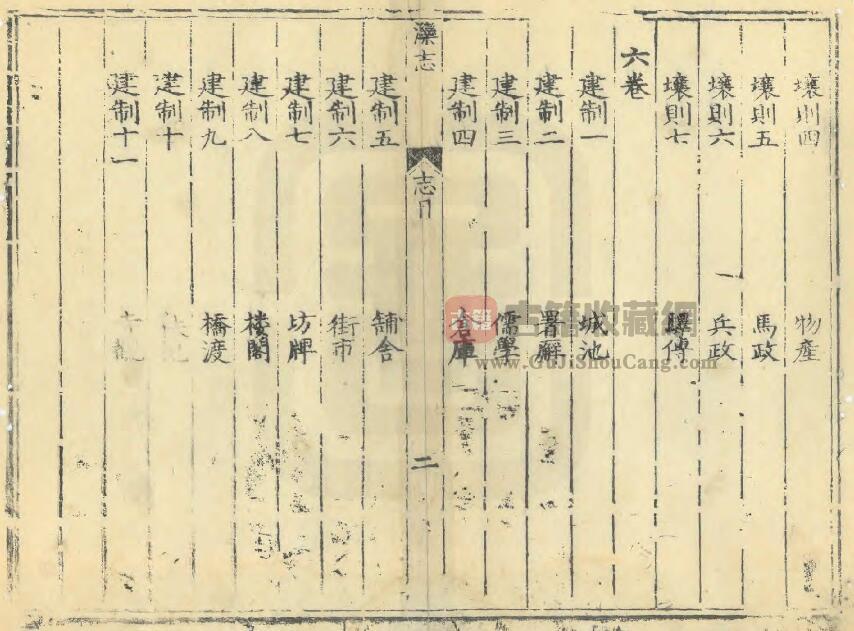 壤則四 物產
壤則五 馬政
壤則六 兵政
壤則七 驛傳
六卷
建制一 城池
建制二 署廨
建制三 儒學
建制四 倉庫
灤志 志目 二
建制五 舖舍
建制六 街市
建制七 坊牌
建制八 楼閣
建制九 橋渡
建制十
建制十一
古籍收藏網
www.GuJiShouCang.com